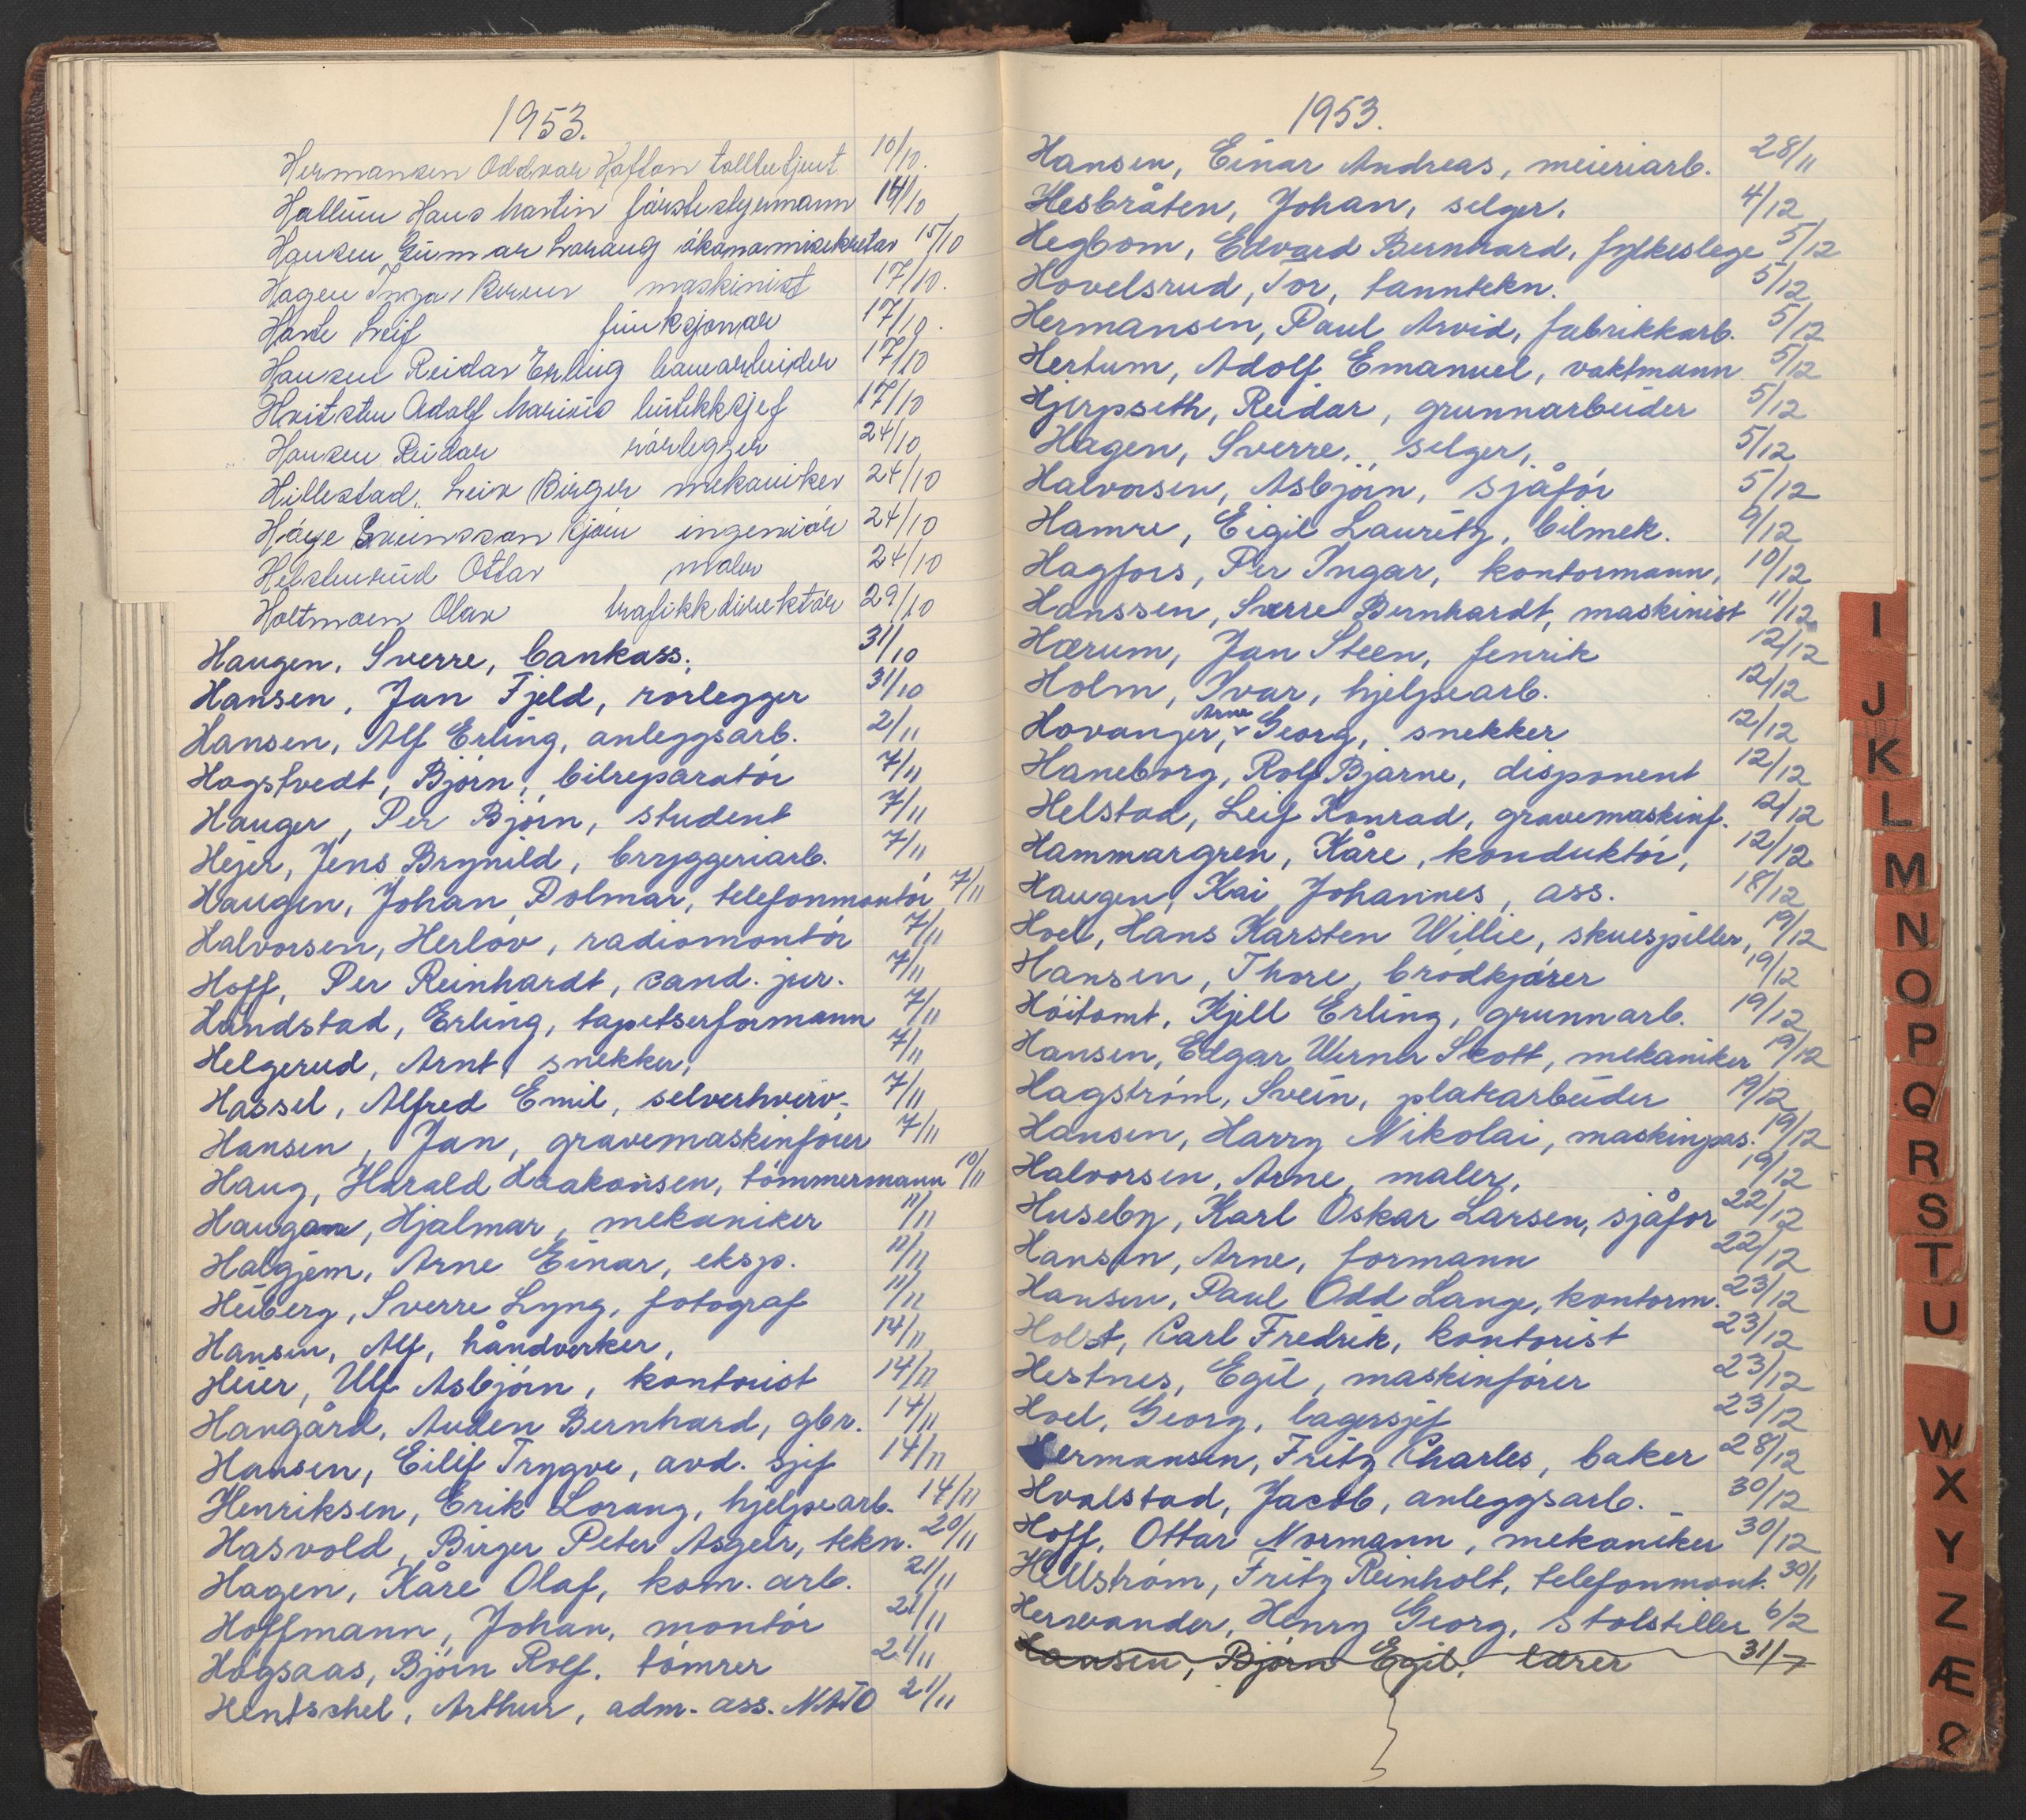 1953.
Hermansen Oddvar Haflan tollbetjent 10/10.
Hallum Hans Martin førstestyrmann 14/10
Hansen Gunnar Laraug økonomisekretær 15/10
Hagen Ingar maskinist 17/10.
Leif funksjonær 17/10.
Hansen Reidar Erling 17/10
Hvitsten Adolf Marinius butikksjef 17/10
Hansen Reidar rørlegger 24/10
Hillestad, Leiv Birger mekaniker 24/10
Høye ingeniør 24/10
Helstenrud Ottar maler 24/10
Holtmoen Olav trafikkdirektør 29/10
Haugen, Sverre, bankass. 31/10
Hansen, Jan Fjeld, rørlegger 31/10
Hansen, Alf Erling, anleggsarb. 2/11
Hagstvedt, Bjørn, bilreparatør 7/11
Hauger, Per Bjørn, student 7/11
Hejer, Jens Brynild, bryggeriarb. 7/11
Haugen, Johan Dolmar, telefonmontør 7/11
Halvorsen, Herlov, radiomontør 7/11
Hoff, Per Reinhardt, cand. jur. 7/11
Hundstad, Erling, tapetserformann 7/11
Helgerud, Arnt, snekker, 7/11
Hassel, Alfred Emil, selverhverv. 7/11
Hansen, Jan, gravemaskinfører 7/11
Haug, Harald Haakonsen, tømmermann 10/11
Haugan, Hjalmar, mekaniker 11/11
Halgjem, Arne Einar, eksp. 11/11
Heiberg, Sverre Lyng, fotograf 11/11
Hansen, Alf, håndverker, 14/11
Heier, Ulf Asbjørn, kontorist 14/11
Haugård, Auden Bernhard, gbr. 14/11
Hansen, Eilif Trygve, avd. sjef 14/11
Henriksen, Erik Lorang, hjelpearb. 14/11
Hasvold, Birger Peter Asgeir, tekn. 20/11
Hagen, Kåre Olaf, kom. arb. 21/11
Hoffmann, Johan, montør 21/11
Høgsaas, Bjørn Rolf, tømrer 21/11
Hentschel, Arthur, adm. ass. NATO 21/11
1953.
Hansen, Einar Andreas, meieriarb. 28/11
Hesbråten, Johan, selger. 4/12
Hegbom, Edvard Bernhard, fylkeslege 5/12
Hovelsrud, Tor, tanntekn. 5/12
Hermansen, Paul Arvid, fabrikkarb. 5/12
Hertum, Adolf Emanuel, vaktmann 5/12
Hjerpseth, Reidar, grunnarbeider 5/12
Hagen, Sverre, selger, 5/12
Halvorsen, Asbjørn, sjåfør 5/12
Hamre, Eigil Lauritz, bilmek. 9/12
Hagfors, Per Ingar, kontormann, 10/12
Hanssen, Sverre Bernhardt, maskinist 11/12
Hærum, Jan Steen, fenrik 12/12
Holm, Ivar, hjelpearb. 12/12
Hovanger, Arne Georg, snekker 12/12
Haneborg, Rolf Bjarne, disponent 12/12
Helstad, Leif Konrad, gravemaskinf. 12/12
Hammargren, Kåre, konduktør, 12/12
Haugen, Kai Johannes, ass. 18/12
Hoel, Hans Karsten Willie, skuespiller, 19/12
Hansen, Thore, brødkjører 19/12
Høitomt, Kjell Erling, grunnarb. 19/12
Hansen, Edgar Werner Skott, mekaniker 19/12
Hagstrøm, Svein, platearbeider 19/12
Hansen, Harry Nikolai, maskinpas. 19/12
Halvorsen, Arne, maler, 19/12
Huseby, Karl Oskar Larsen, sjåfør 22/12
Hansen, Arne, formann 22/12
Hansen, Paul Odd Lange, kontorm. 23/12
Holst, Carl Fredrik, kontorist 23/12
Hestnes, Egil, maskinfører 23/12
Hoel, Georg, lagersjef 23/12
Hermansen, Fritz Charles, baker 28/12
Hvalstad, Jacob, anleggsarb. 30/12
Hoff, Ottar Normann, mekaniker 30/12
Hellstrøm, Fritz Reinholt, telefonmont. 30/1
Herwander, Henry Georg, stolstiller 6/2
Hansen, Bjørn Egil, lærer 31/7
I
J
K
L
M
N
O
P
Q
R
S
T
U
W
X
Y
Z
Æ